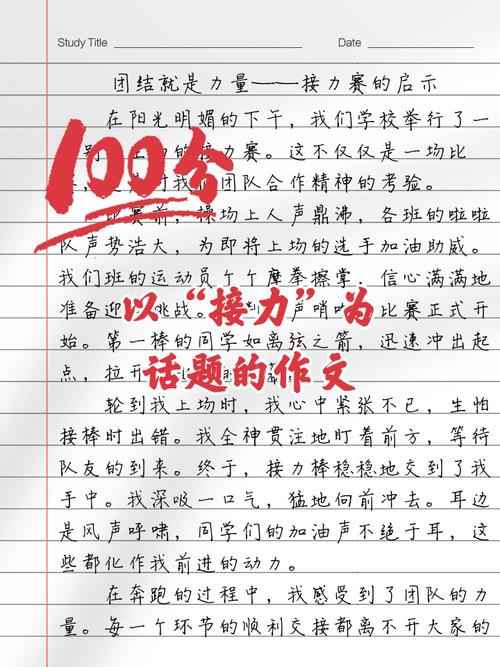 Study Title
Date
团结就是力量——接力赛的启示
在阳光明媚的下午，我们学校举行了一
100分
别 的接力赛。这不仅仅是一场比
是对我 团队合作精神的考验。
比赛前，操场上人声鼎沸，各班的啦啦
队声势浩大，为即将上场的选手加油助威。
我们班的运动员个个摩拳擦掌，信心满满地
准备迎 挑战。 声哨 比赛正式开
以“接力”为
始。第一棒的同学如离弦之箭，迅速冲出起
点，拉开
话题的作文
轮到我上场时，我心中紧张不已，生怕
接棒时出错。我全神贯注地盯着前方，等待
队友的到来。终于，接力棒稳稳地交到了我
手中。我深吸一口气，猛地向前冲去。耳边
是风声呼啸，同学们的加油声不绝于耳，这
些都化作我前进的动力。
在奔跑的过程中，我感受到了团队的力
量。每一个环节的顺利交接都离不开大家的